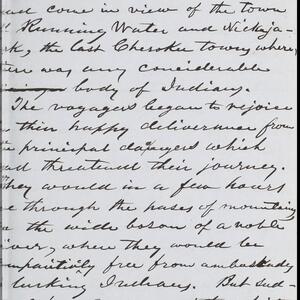 and come in view of the town
Running Water and Nickja-
ck, the last Cherokee towns where
there was any considerable
body of Indians.
The voyagers began to rejoice
in their happy deliverance from
the principal dangers which
had threatened their journey.
They would in a few hours
be through the passes of mountains
on the wide bosom of a noble
river, where they would be
comparatively free from ambuskady
lurking Indians. But sud-